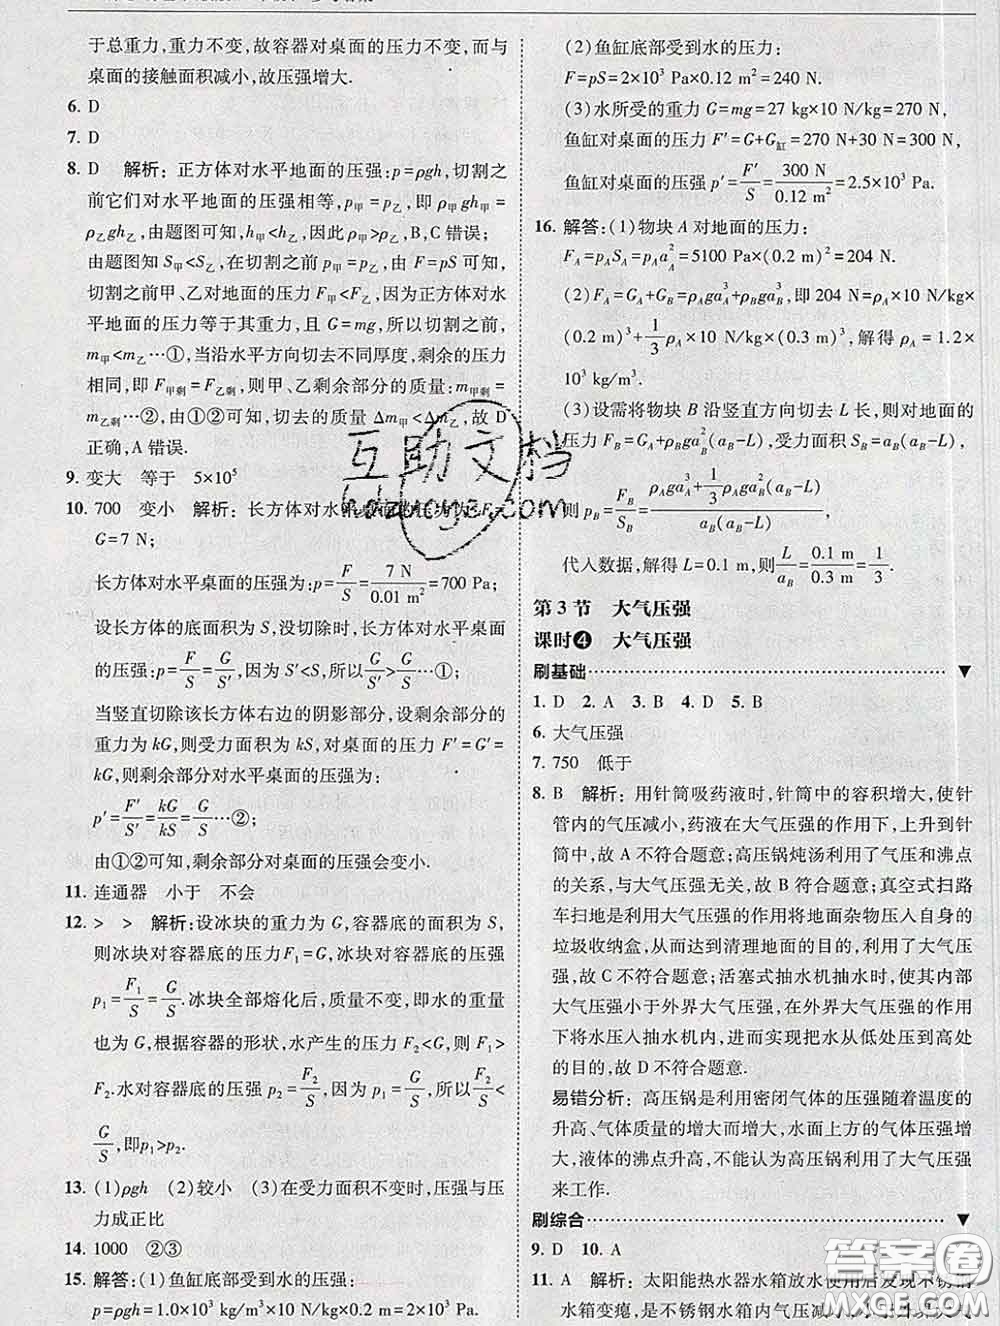 于总重力,重力不变,故容器对桌面的压力不变,而与
桌面的接触面积减小,故压强增大.
6. D
7. D
8. D 解析:正方体对水平地面的压强:p=ρgh,切割之
前它们对水平地面的压强相等,p甲=p乙,即 ρ甲gh甲=
ρ乙gh乙,由题图可知,h甲<h乙,因此ρ甲>ρ乙,B、C 错误;
由题图知 S甲<S乙,在切割之前 p甲=p乙,由 F=pS 可知,
切割之前甲、乙对地面的压力 F甲<F乙,因为正方体对水
平地面的压力等于其重力,且 G=mg,所以切割之前,
m甲<m乙…①,当沿水平方向切去不同厚度,剩余的压力
相同,即 F甲剩=F乙剩,则甲、乙剩余部分的质量:m甲剩
=m乙剩…②,由①②可知,切去的质量 Δm甲<Δm乙,故 D
正确,A 错误.
9. 变大 等于 5×10⁵
10. 700 变小 解析:长方体对水平桌面的压力为:F=
G=7 N;
长方体对水平桌面的压强为:p=F/S=7 N/0.01 m²=700 Pa;
设长方体的底面积为 S,没切除时,长方体对水平桌面
的压强:p=F/S=G/S,因为 S'<S,所以G/S'>G/S…①;
当竖直切除该长方体右边的阴影部分,设剩余部分的
重力为 kG,则受力面积为 kS,对桌面的压力 F'=G'=
kG,则剩余部分对水平桌面的压强为:
p=F'/S'=kG/kS=G/S…②;
由①②可知,剩余部分对桌面的压强会变小.
11. 连通器 小于 不会
12. > > 解析:设冰块的重力为 G,容器底的面积为 S,
则冰块对容器底的压力F₁=G,冰块对容器底的压强
p₁=F₁/S=G/S.冰块全部熔化后,质量不变,即水的重量
也为 G,根据容器的形状,水产生的压力 F₂<G,则 F₁>
F₂.水对容器底的压强 p₂=F₂/S,因为 p₁=G/S,所以F₂/S<
G/S,即p₁>p₂.
13. (1)ρgh (2)较小 (3)在受力面积不变时,压强与压
力成正比
14. 1000 ②③
15. 解答:(1)鱼缸底部受到水的压强:
p=ρgh=1.0×10³ kg/m³×10 N/kg×
(2)鱼缸底部受到水的压力:
F=pS=2×10³ Pa×0.12 m²=240 N.
(3)水所受的重力 G=mg=27 kg×10 N/kg=270 N,
鱼缸对桌面的压力 F'=G+G缸=270 N+30 N=300 N,
鱼缸对桌面的压强 p'=F'/S=300 N/0.12 m²=2.5×10³ Pa.
16. 解答:(1)物块 A 对地面的压力:
F_A=p_A S_A=p_A a_A²=5100 Pa×(0.2 m)²=204 N.
(2)F_A=G_A+G_B=ρ_A g a_A³+ρ_B g a_B³,即 204 N=ρ_A×10 N/kg×
(0.2 m)³+1/3 ρ_A×10 N/kg×(0.3 m)³,解得 ρ_A=1.2×
10³ kg/m³.
(3)设需将物块 B 沿竖直方向切去 L 长,则对地面的
压力 F_B=G_A+ρ_B g a_B²(a_B-L),受力面积 S_B=a_B(a_B-L),
则 p_B=F_B/S_B=(ρ_A g a_A³+1/3 ρ_A g a_B²(a_B-L))/(a_B(a_B-L)),
代入数据,解得 L=0.1 m,则L/a_B=0.1 m/0.3 m=1/3.
第 3 节 大气压强
课时❹ 大气压强
刷基础 ▼
1. D 2. A 3. B 4. D 5. B
6. 大气压强
7. 750 低于
8. B 解析:用针筒吸药液时,针筒中的容积增大,使针
管内的气压减小,药液在大气压强的作用下,上升到针
筒中,故 A 不符合题意;高压锅炖汤利用了气压和沸点
的关系,与大气压强无关,故 B 符合题意;真空式扫路
车扫地是利用大气压强的作用将地面杂物压入自身的
垃圾收纳盒,从而达到清理地面的目的,利用了大气压
强,故 C 不符合题意;活塞式抽水机抽水时,使其内部
大气压强小于外界大气压强,在外界大气压强的作用
下将水压入抽水机内,进而实现把水从低处压到高处
的目的,故 D 不符合题意.
易错分析:高压锅是利用密闭气体的压强随着温度的
升高、气体质量的增大而增大,水面上方的气体压强增
大,液体的沸点升高,不能认为高压锅利用了大气压强
来工作.
刷综合 ▼
9. D 10. A
11. A 解析:太阳能热水器水箱放水使用后发现不锈钢
水箱变瘪,是不锈钢水箱内气压减小,小于外界大气
互助文档
hdzuoye.com
答案圈
MXQE.COM